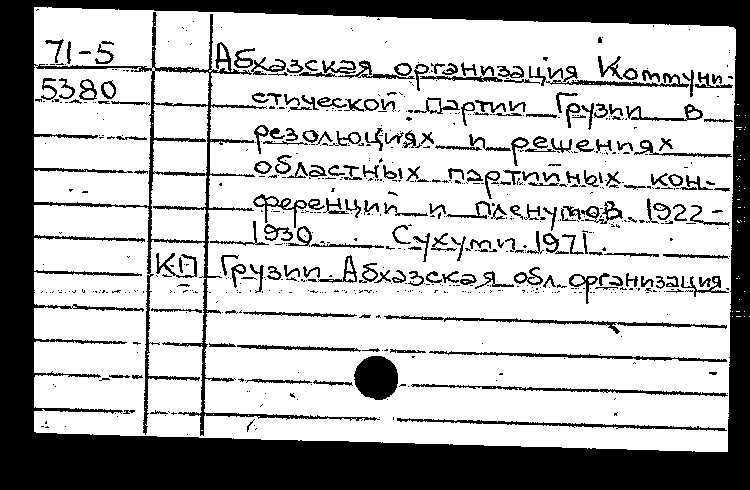 71-5 Абхазская организация Коммуни-
5380 стической партии Грузии в
резолюциях и решениях
областных партийных кон-
ференций и пленумов. 1922-
1930 . Сухуми. 1971.
КП Грузии. Абхазская обл. организация.